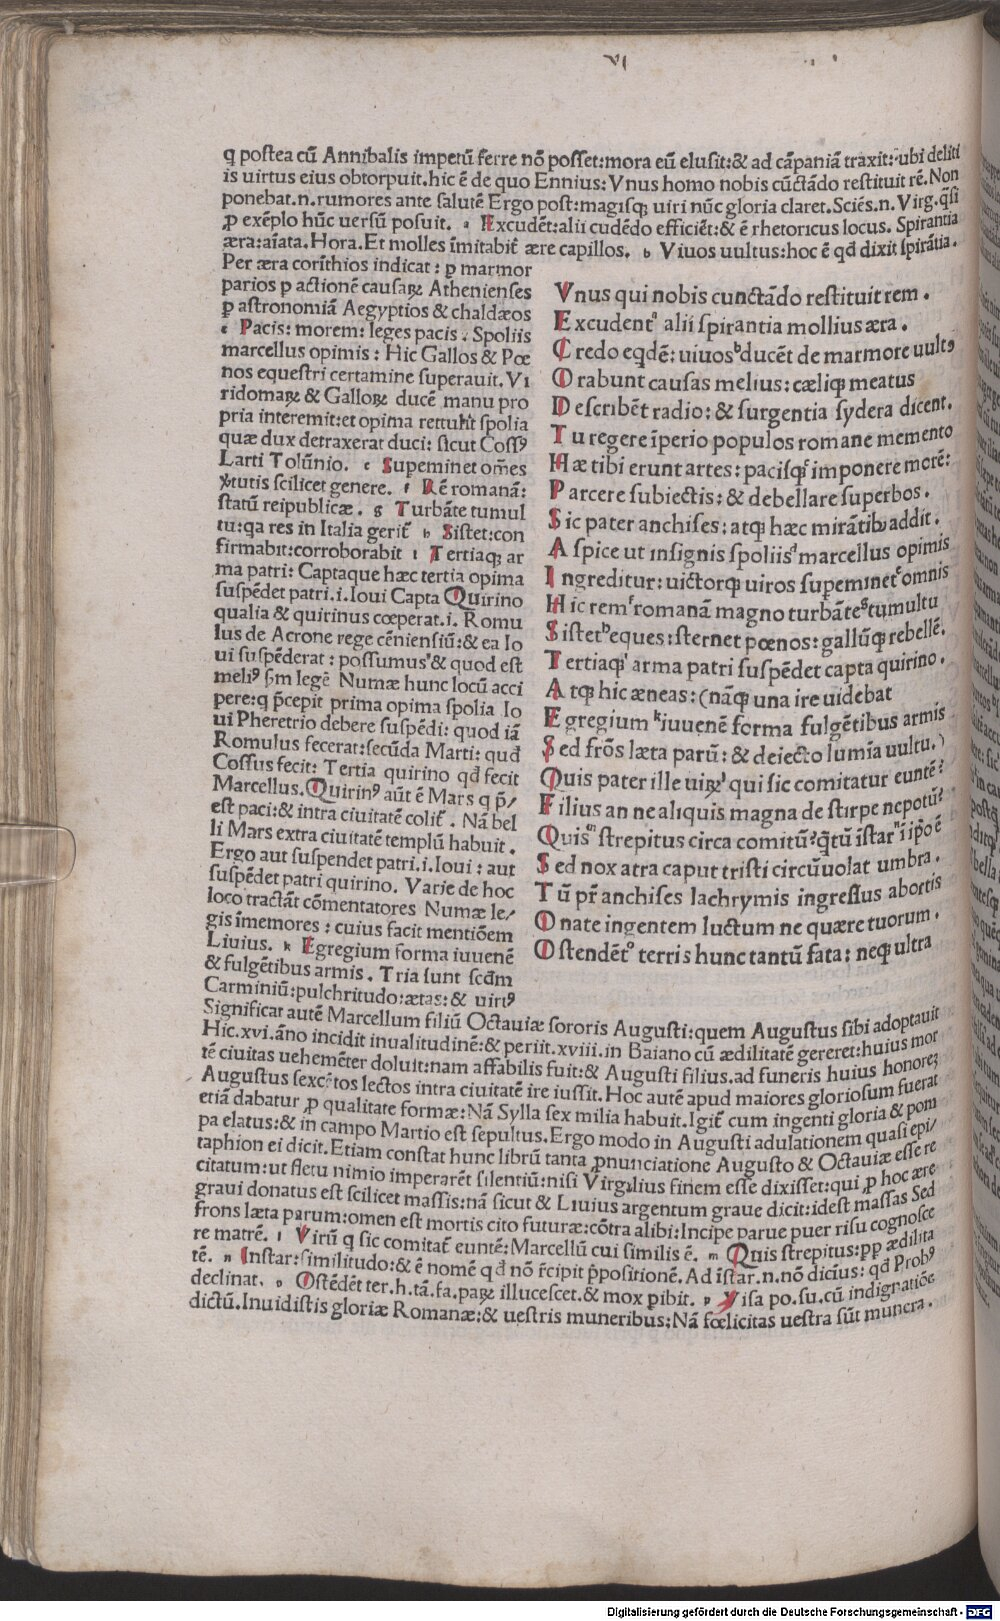 VI
ꝗ postea cū Annibalis impetū ferre nō posset:mora eū elusit:& ad cāpaniā traxit:ubi deliti
is uirtus eius obtorpuit.hic ē de quo Ennius:Vnus homo nobis cūctādo restituit rē.Non
ponebat.n.rumores ante salutē Ergo post:magisqꝫ uiri nūc gloria claret.Sciēs.n.Virg.q̄si
ꝓ exēplo hūc uersū posuit. a Excudēt:alii cudēdo efficiēt:& ē rhetoricus locus. Spirantia
æra:aīata.Hora.Et molles īmitabit̄ ære capillos. b Viuos uultus:hoc ē qđ dixit spirātia.
Per æra corīthios indicat: ꝑ marmor
parios ꝑ actionē causaꝝ Athenienses
ꝑ astronomiā Aegyptios & chaldæos
c Pacis: morem: leges pacis. Spoliis
marcellus opimis: Hic Gallos & Pœ
nos equestri certamine superauit. Vi
ridomaꝝ & Galloꝝ ducē manu pro
pria interemit:et opima rettulit spolia
quæ dux detraxerat duci: sicut Cossꝰ
Larti Tolūnio. e Supeminet om̄es
ꝟtutis scilicet genere. f Rē romanā:
statū reipublicæ. g Turbāte tumul
tu:qa res in Italia gerit̄ h Sistet:con
firmabit:corroborabit i Tertiaqꝫ ar
ma patri: Captaque hæc tertia opima
suspēdet patri.i.Ioui Capta Quirino
qualia & quirinus cœperat.i. Romu
lus de Acrone rege cēniensiū:& ea Io
ui suspēderat: possumus & quod est
meliꝰ s̄m legē Numæ hunc locū acci
pere:q p̄cepit prima opima spolia Io
ui Pheretrio debere suspēdi: quod iā
Romulus fecerat:secūda Marti: quđ
Cossus fecit: Tertia quirino qđ fecit
Marcellus. Quirinꝰ aūt ē Mars q p̄/
est paci:& intra ciuitatē colit̄. Nā bel
li Mars extra ciuitatē templū habuit.
Ergo aut suspendet patri.i.Ioui: aut
suspēdet patri quirino. Varie de hoc
loco tractāt cōmentatores Numæ le/
gis īmemores: cuius facit mentiōem
Liuius. k Egregium forma iuuenē
& fulgētibus armis. Tria sunt scđm
Carminiū:pulchritudo:ætas:& uirtꝰ
Vnus qui nobis cunctādo restituit rem.
Excudentᵃ alii spirantia mollius æra.
Credo eqđē: uiuosᵇ ducēt de marmore uultꝰ
Orabunt causas melius: cæliqꝫ meatus
Describēt radio: & surgentia sydera dicent.
Tu regere īperio populos romane memento
Hæ tibi erunt artes: pacisqꝫᶜ imponere morē:
Parcere subiectis: & debellare superbos.
Sic pater anchises: atqꝫ hæc mirātibꝫ addit.
Aspice ut insignis spoliisᵈ marcellus opimis
Ingreditur: uictorqꝫ uiros supeminetᵉ omnis
Hic remᶠ romanā magno turbāteᵍ tumultu
Sistetʰ eques: sternet pœnos: gallūqꝫ rebellē.
Tertiaqꝫⁱ arma patri suspēdet capta quirino.
Atqꝫ hic æneas: (nāqꝫ una ire uidebat
Egregium ᵏ iuuenē forma fulgētibus armis
Sed frōs læta parū: & deiecto lumīa uultu.)
Quis pater ille uiꝝˡ qui sic comitatur euntē?
Filius anne aliquis magna de stirpe nepotū?
Quisᵐ strepitus circa comitū? q̄tū īstarⁿ ī ip̄o ē
Sed nox atra caput tristi circūuolat umbra.
Tū pr̄ anchises lachrymis ingressus abortis
O nate ingentem luctum ne quære tuorum.
Ostendētᵒ terris hunc tantū fata: neqꝫ ultra
Significat autē Marcellum filiū Octauiæ sororis Augusti:quem Augustus sibi adoptauit
Hic.xvi.āno incidit inualitudinē:& periit.xviii.in Baiano cū ædilitatē gereret:huius mor
tē ciuitas uehemēter doluit:nam affabilis fuit:& Augusti filius.ad funeris huius honorez
Augustus sexcētos lectos intra ciuitatē ire iussit. Hoc autē apud maiores gloriosum fuerat
etiā dabatur ꝓ qualitate formæ: Nā Sylla sex milia habuit.Igit̄ cum ingenti gloria & pom
pa elatus:& in campo Martio est sepultus.Ergo modo in Augusti adulationem quasi epi/
taphion ei dicit.Etiam constat hunc librū tanta ꝓnunciatione Augusto & Octauiæ esse re
citatum:ut fletu nimio imperarēt silentiū:nisi Virgilius finem esse dixisset:qui ꝓ hoc ære
graui donatus est scilicet massis:nā sicut & Liuius argentum graue dicit:idest massas Sed
frons læta parum:omen est mortis cito futuræ:cōtra alibi:Incipe parue puer risu cognosce
re matrē. l Virū q sic comitat̄ euntē:Marcellū cui similis ē. m Quis strepitus:ꝓꝑ ædilita
tē. n Instar:similitudo:& ē nomē qđ nō r̄cipit p̄positionē. Ad īstar.n.nō dicīus: qđ Probꝰ
declinat. o Ostēdēt ter.h.tā.fa.paꝝ illucescet.& mox ꝑibit. p Visa po.su.cū indignatiōe
dictū.Inuidistis gloriæ Romanæ:& uestris muneribus:Nā fœlicitas uestra sūt munera.
Digitalisierung gefördert durch die Deutsche Forschungsgemeinschaft - DFG